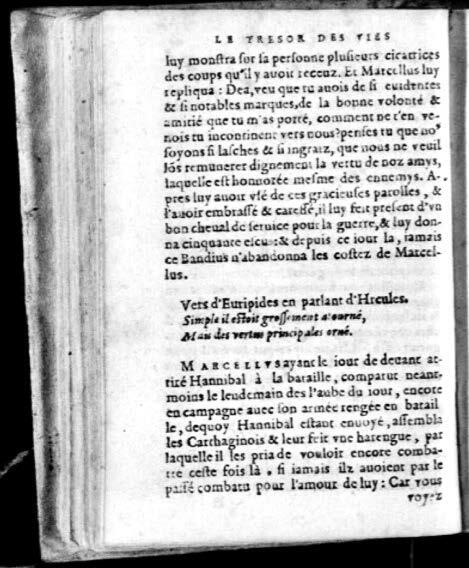 LE TRESOR DES VIES
luy monstra sur sa personne plusieurs cicatrices
des coups qu'il y auoit receuz. Et Marcellus luy
repliqua : Dea, veu que tu auois de si euidentes
& si notables marques, de la bonne volonté &
amitié que tu m'as porté, comment ne t'en ve-
nois tu incontinent vers nous? penses tu que no⁹
soyons si lasches & si ingratz, que nous ne veuil
lõs remunerer dignement la vertu de noz amys,
laquelle est honnorée mesme des ennemys. A-
pres luy auoir vsé de ces gracieuses parolles, &
l'auoir embrassé & caressé, il luy feit present d'vn
bon cheual de seruice pour la guerre, & luy don-
na cinquante escu : & depuis ce iour la, iamais
ce Bandius n'abandonna les costez de Marcel-
lus.
Vers d'Euripides en parlant d'Hrcules.
Simple il estoit grossement a ourné,
Mais des vertus principales orné.
MARCELLVS ayant le iour de deuant at-
tiré Hannibal à la bataille, comparut neant-
moins le leudemain des l'aube du iour, encore
en campagne auec son armée rengée en batail
le, dequoy Hannibal estant enuoyé, assembla
les Carthaginois & leur feit vne harengue, par
laquelle il les pria de vouloir encore comba-
tre ceste fois là, si iamais ilz auoient par le
passé combatu pour l'amour de luy : Car vous
voyez